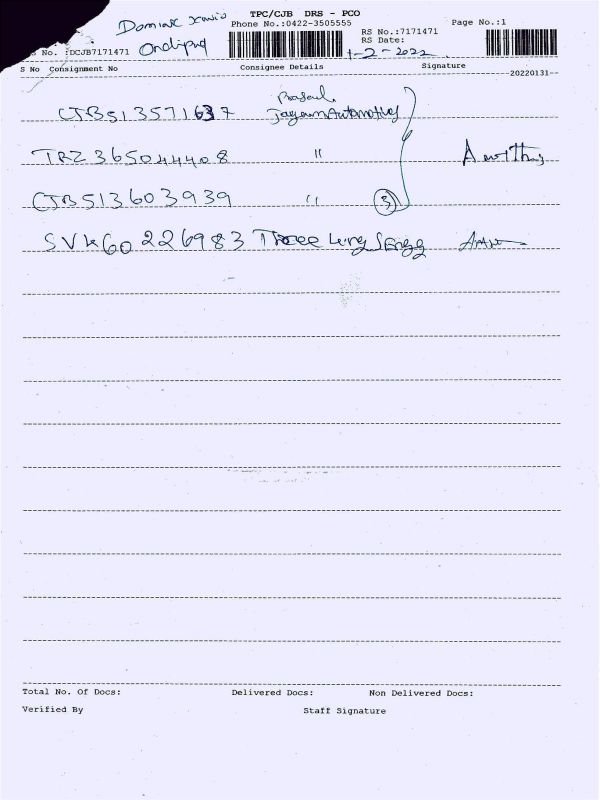 TPC/CJB DRS - PCO
Phone No.:0422-3505555
Page No.:1
RS No.:7171471
RS Date:
1-2-2022
s No. :DCJB7171471
S No Consignment No Consignee Details Signature
20220131
CJB513571637
Jayam Automotives
TRZ365044408 "
CJB513603939 " 3
SVK60226983 Three Engg
Total No. Of Docs: Delivered Docs: Non Delivered Docs:
Verified By Staff Signature